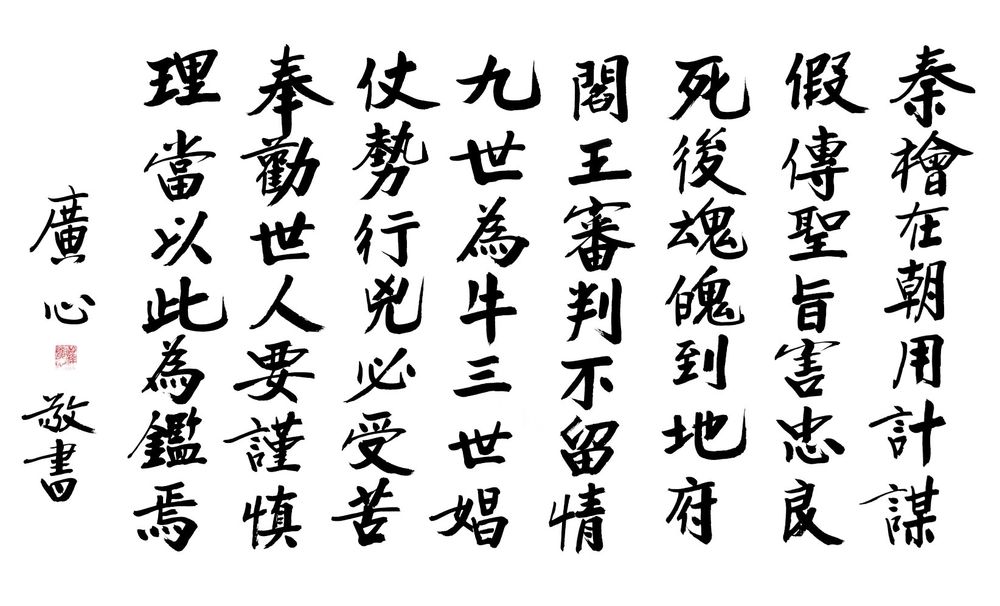 秦檜在朝用計謀
假傳聖旨害忠良
死後魂魄到地府
閻王審判不留情
九世為牛三世娼
仗勢行兇必受苦
奉勸世人要謹慎
理當以此為鑑焉
廣心 敬書